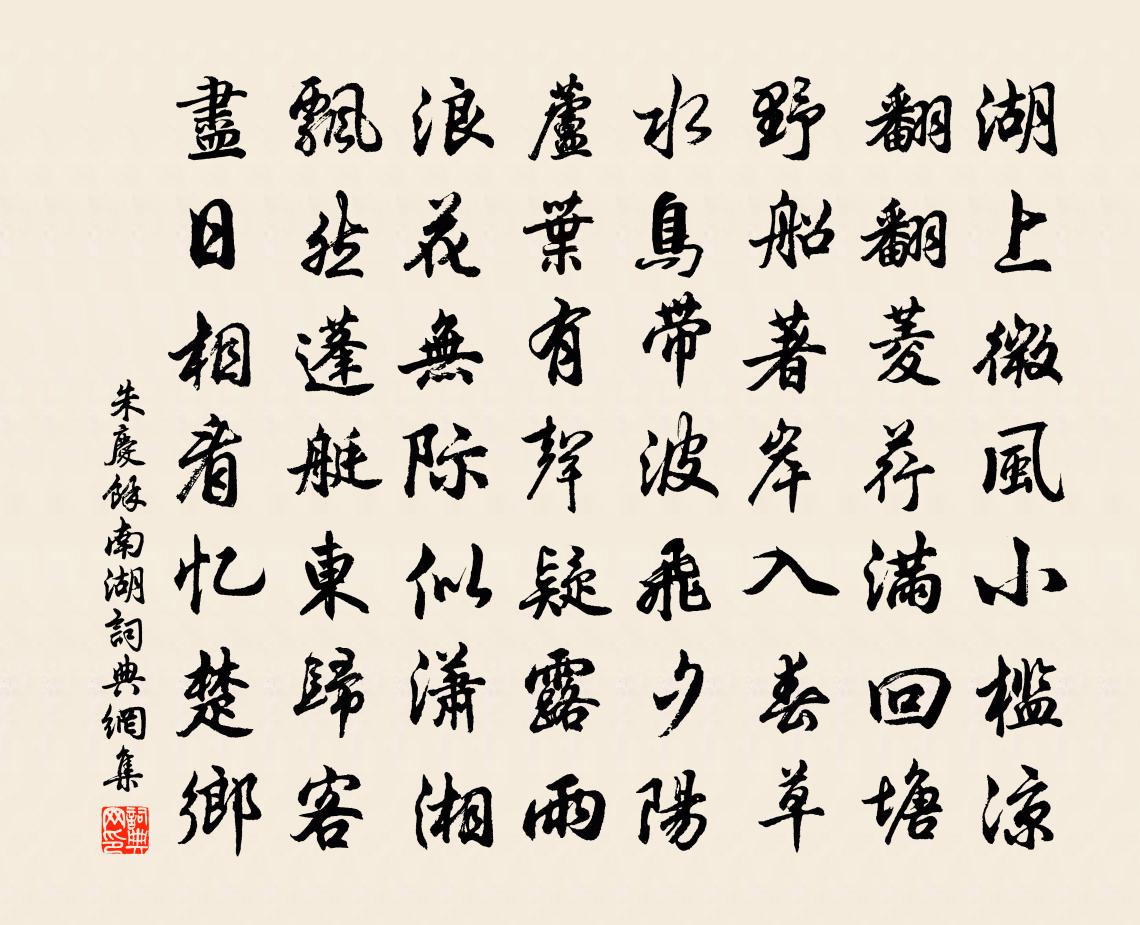 湖上微風小檻涼
翻翻菱荇滿回塘
野船著岸入春草
水鳥帶波飛夕陽
蘆葉有聲疑露雨
浪花無際似瀟湘
飄然蓬艇東歸客
盡日相看忆楚鄉
朱慶餘南湖詞典網集
詞典网印